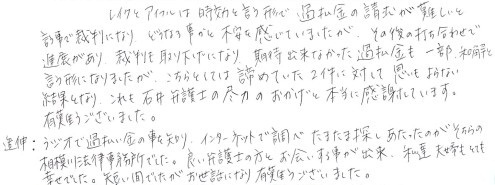 レイクとアイフルは時効と言う形で過払金の請求が難しいと
言う事で裁判になり どうなる事かと不安を感じていましたが、その後の打ち合わせで
進展があり、裁判も取り下げになり 期待出来なかった過払金も一部、和解と
言う形になりましたが、こちらとしては諦めていた2件に対して思いもよらない
結果となり、これも石井弁護士の尽力のおかげと本当に感謝しています。
有難うございました。
追伸:ラジオで過払い金の事を知り、インターネットで調べたまたま探しあたったのがそちらの
相模川法律事務所でした。良い弁護士の方とお会いする事が出来、私達夫婦もとても
幸せでした。短い間でしたがお世話になり有難うございました。